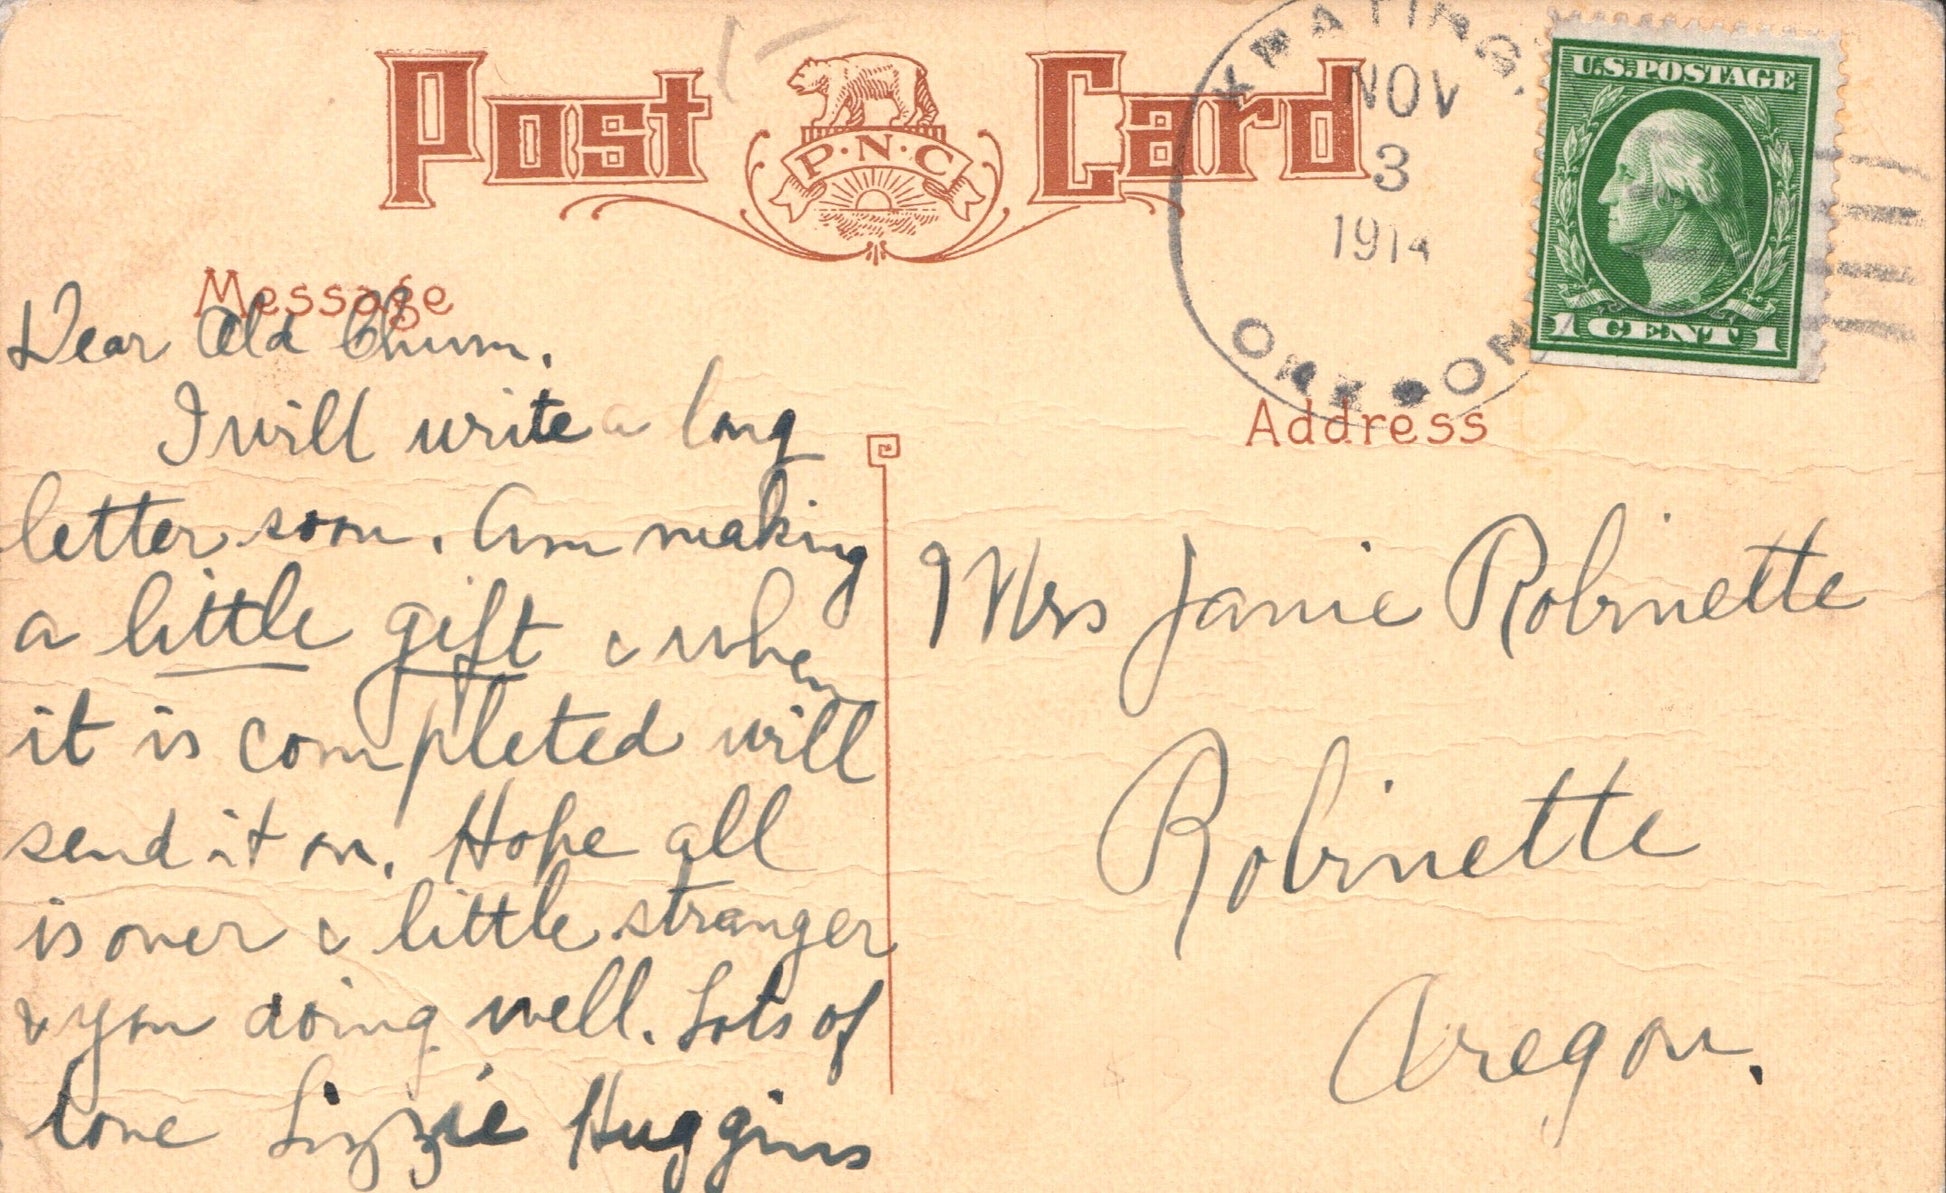 Post Card
P.N.C
KEATING,
NOV
3
1914
OREGON
U.S.POSTAGE
1 CENT 1
Message
Dear Old Chum,
I will write a long
letter soon. Am making
a little gift & when
it is completed will
send it on. Hope all
is over & little stranger
& you doing well. Lots of
love Lizzie Huggins
Address
Mrs Janie Robinette
Robinette
Oregon.